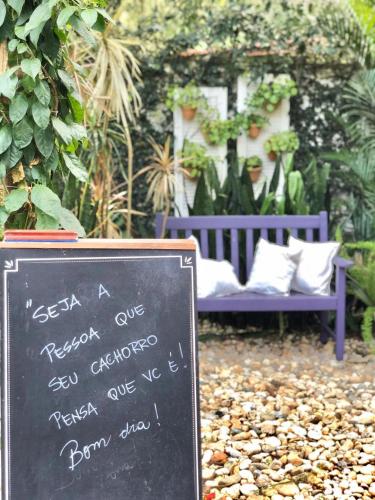 "SEJA A
PESSOA QUE
SEU CACHORRO
PENSA QUE VC É!
Bom dia!